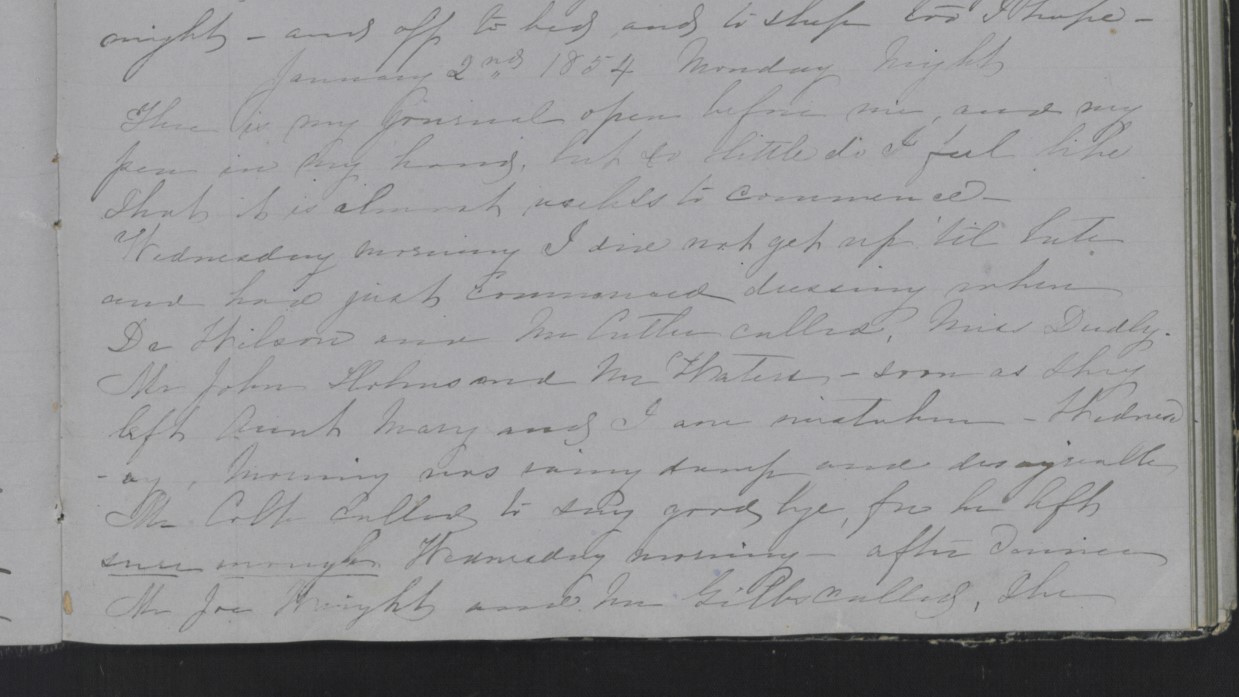 night - and off to bed and to sleep too I hope -
January 2nd 1854 Monday Night
Here is my Journal open before me, and my
pen in my hand, but so little do I feel like
that it is almost useless to commence -
Wednesday morning I did not get up 'til late
and had just commenced dressing when
Dr Wilson and Mr Cutler called, Miss Dudly.
Mr John and Mr Waters - soon as they
left Aunt Mary and I am mistaken - Wednesd
-ay, Morning was rainy damp and disagreeable
Mr Colt called to say good bye, for he left
sure enough Wednesday morning - after dinner
Mr Joe Wright and Mr Gibbs called, the